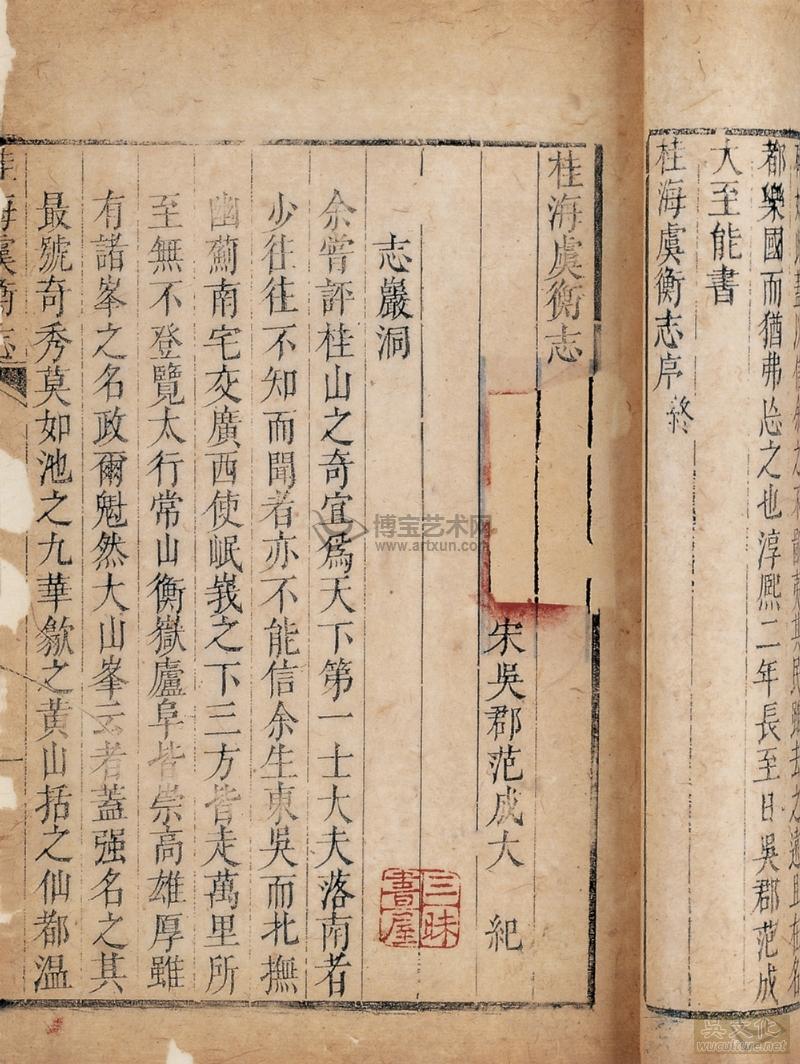 都樂國而猶弗忘之也淳熙二年長至日吳郡范成
大至能書
桂海虞衡志序 終
桂海虞衡志
宋吳郡范成大 紀
志巖洞
余嘗評桂山之奇宜爲天下第一士大夫落南者
少往往不知而聞者亦不能信余生東吳而北撫
幽薊南宅交廣西使岷峩之下三方皆走萬里所
至無不登覽太行常山衡嶽廬阜皆崇高雄厚雖
有諸峯之名政爾魁然大山峯云者蓋强名之其
最號奇秀莫如池之九華歙之黄山括之仙都溫
桂海虞衡志
三昧書屋
博宝艺术网
www.artxun.com
吳文化
wuculture.net